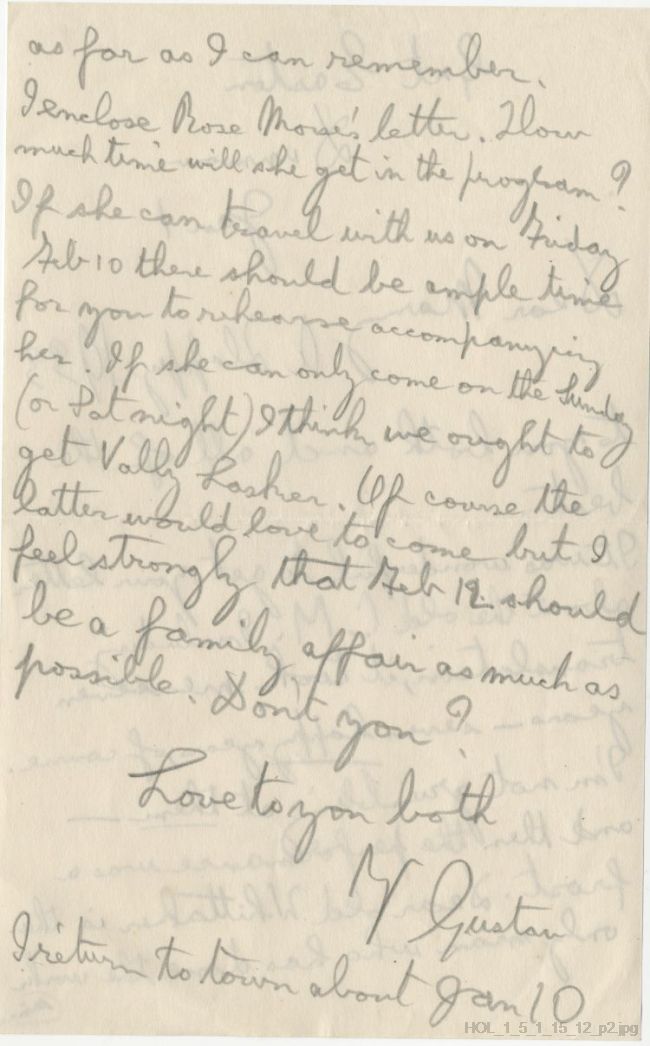 as far as I can remember.
I enclose Rose Morse's letter. How
much time will she get in the program?
If she can travel with us on Friday
Feb 10 there should be ample time
for you to rehearse accompanying
her. If she can only come on the Sunday
(or Sat night) I think we ought to
get Vally Lasker. Of course the
latter would love to come but I
feel strongly that Feb 12 should
be a family affair as much as
possible. Dont you?
Love to you both
Y Gustav
I return to town about Jan 10
HOL_1_5_1_15_12_p2.jpg